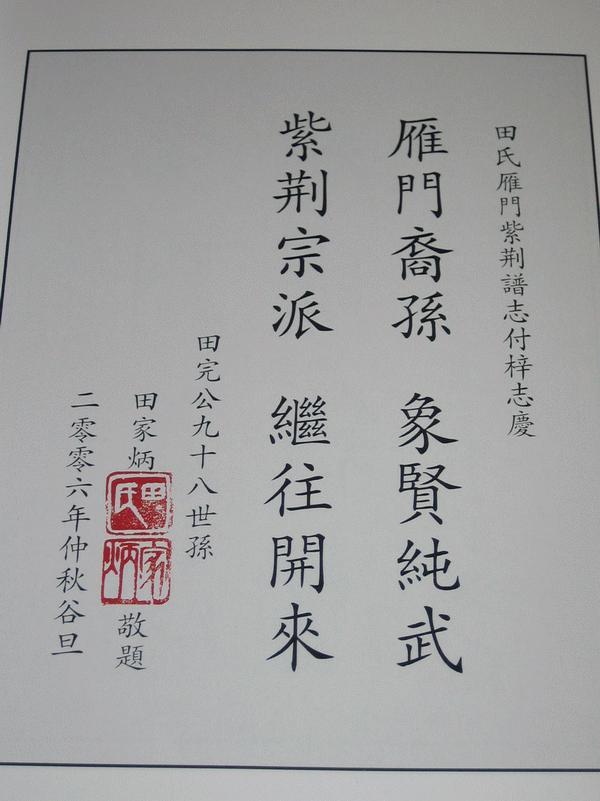 田氏雁門紫荆譜志付梓志慶
雁門裔孫 象賢純武
紫荆宗派 繼往開來
田完公九十八世孫
田家炳 敬題
田氏
家炳
二零零六年仲秋谷旦